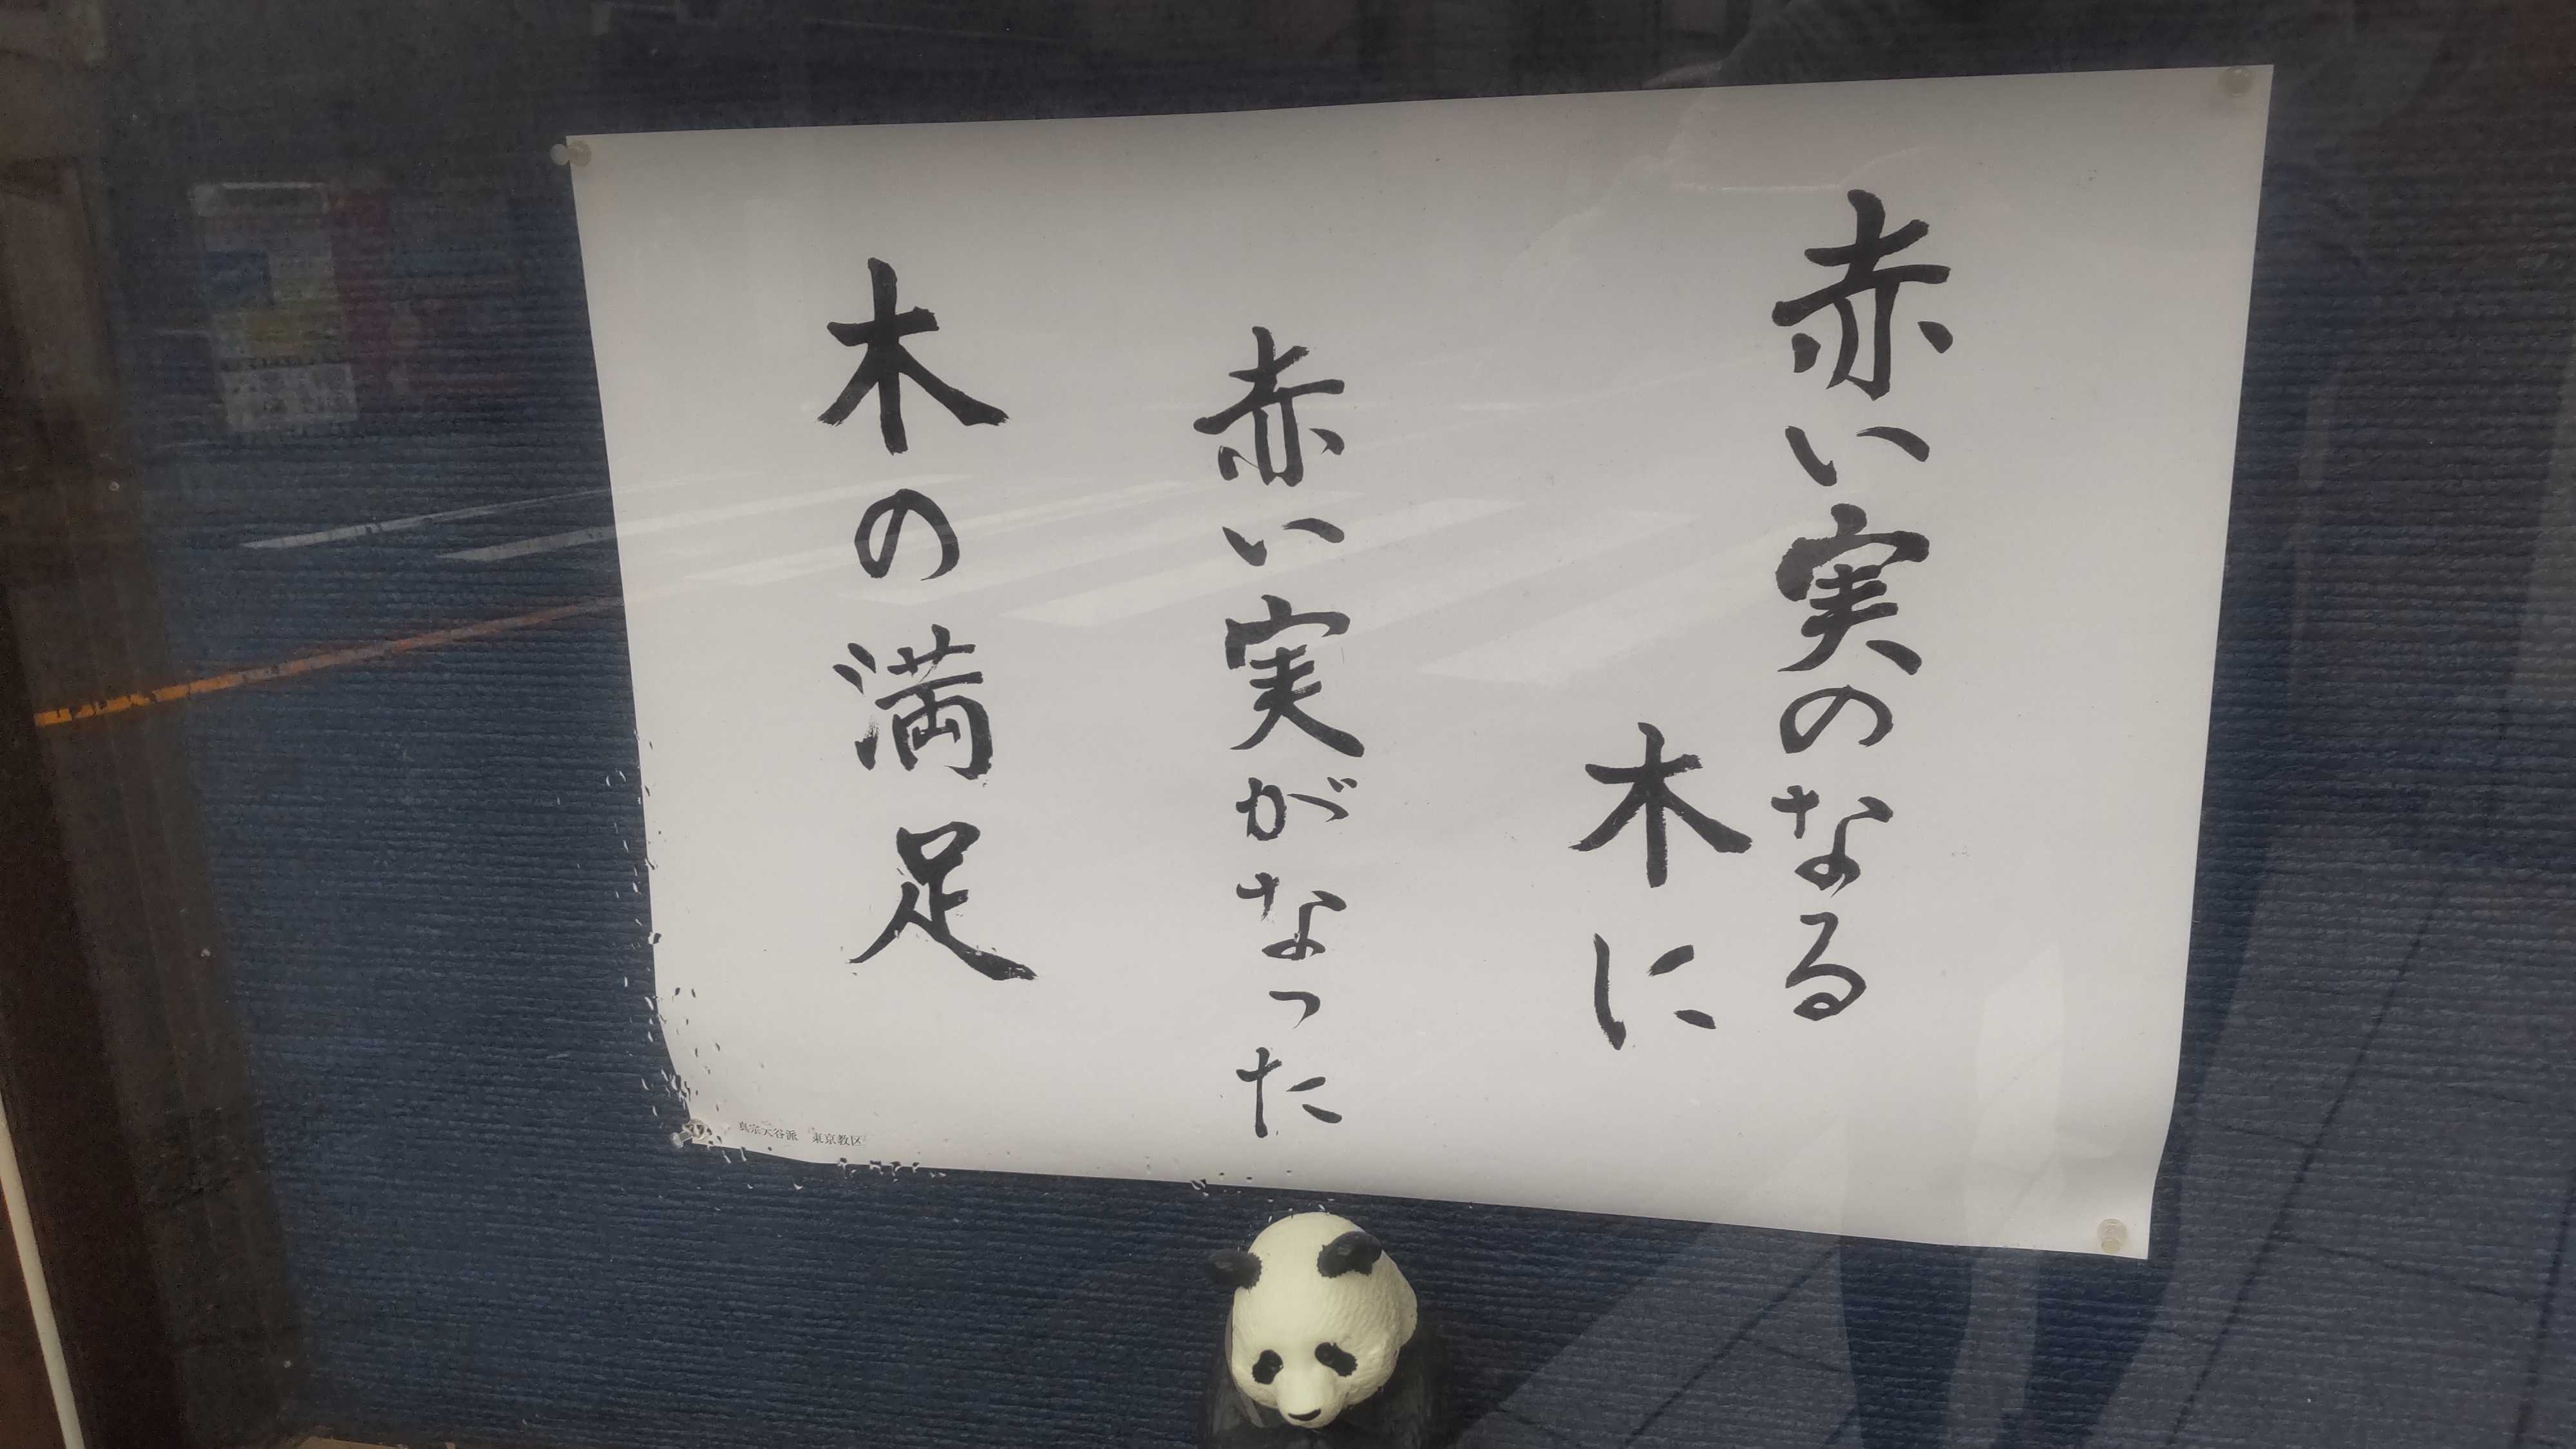 赤い実のなる
木に
赤い実がなった
木の満足
真宗大谷派 東京教区